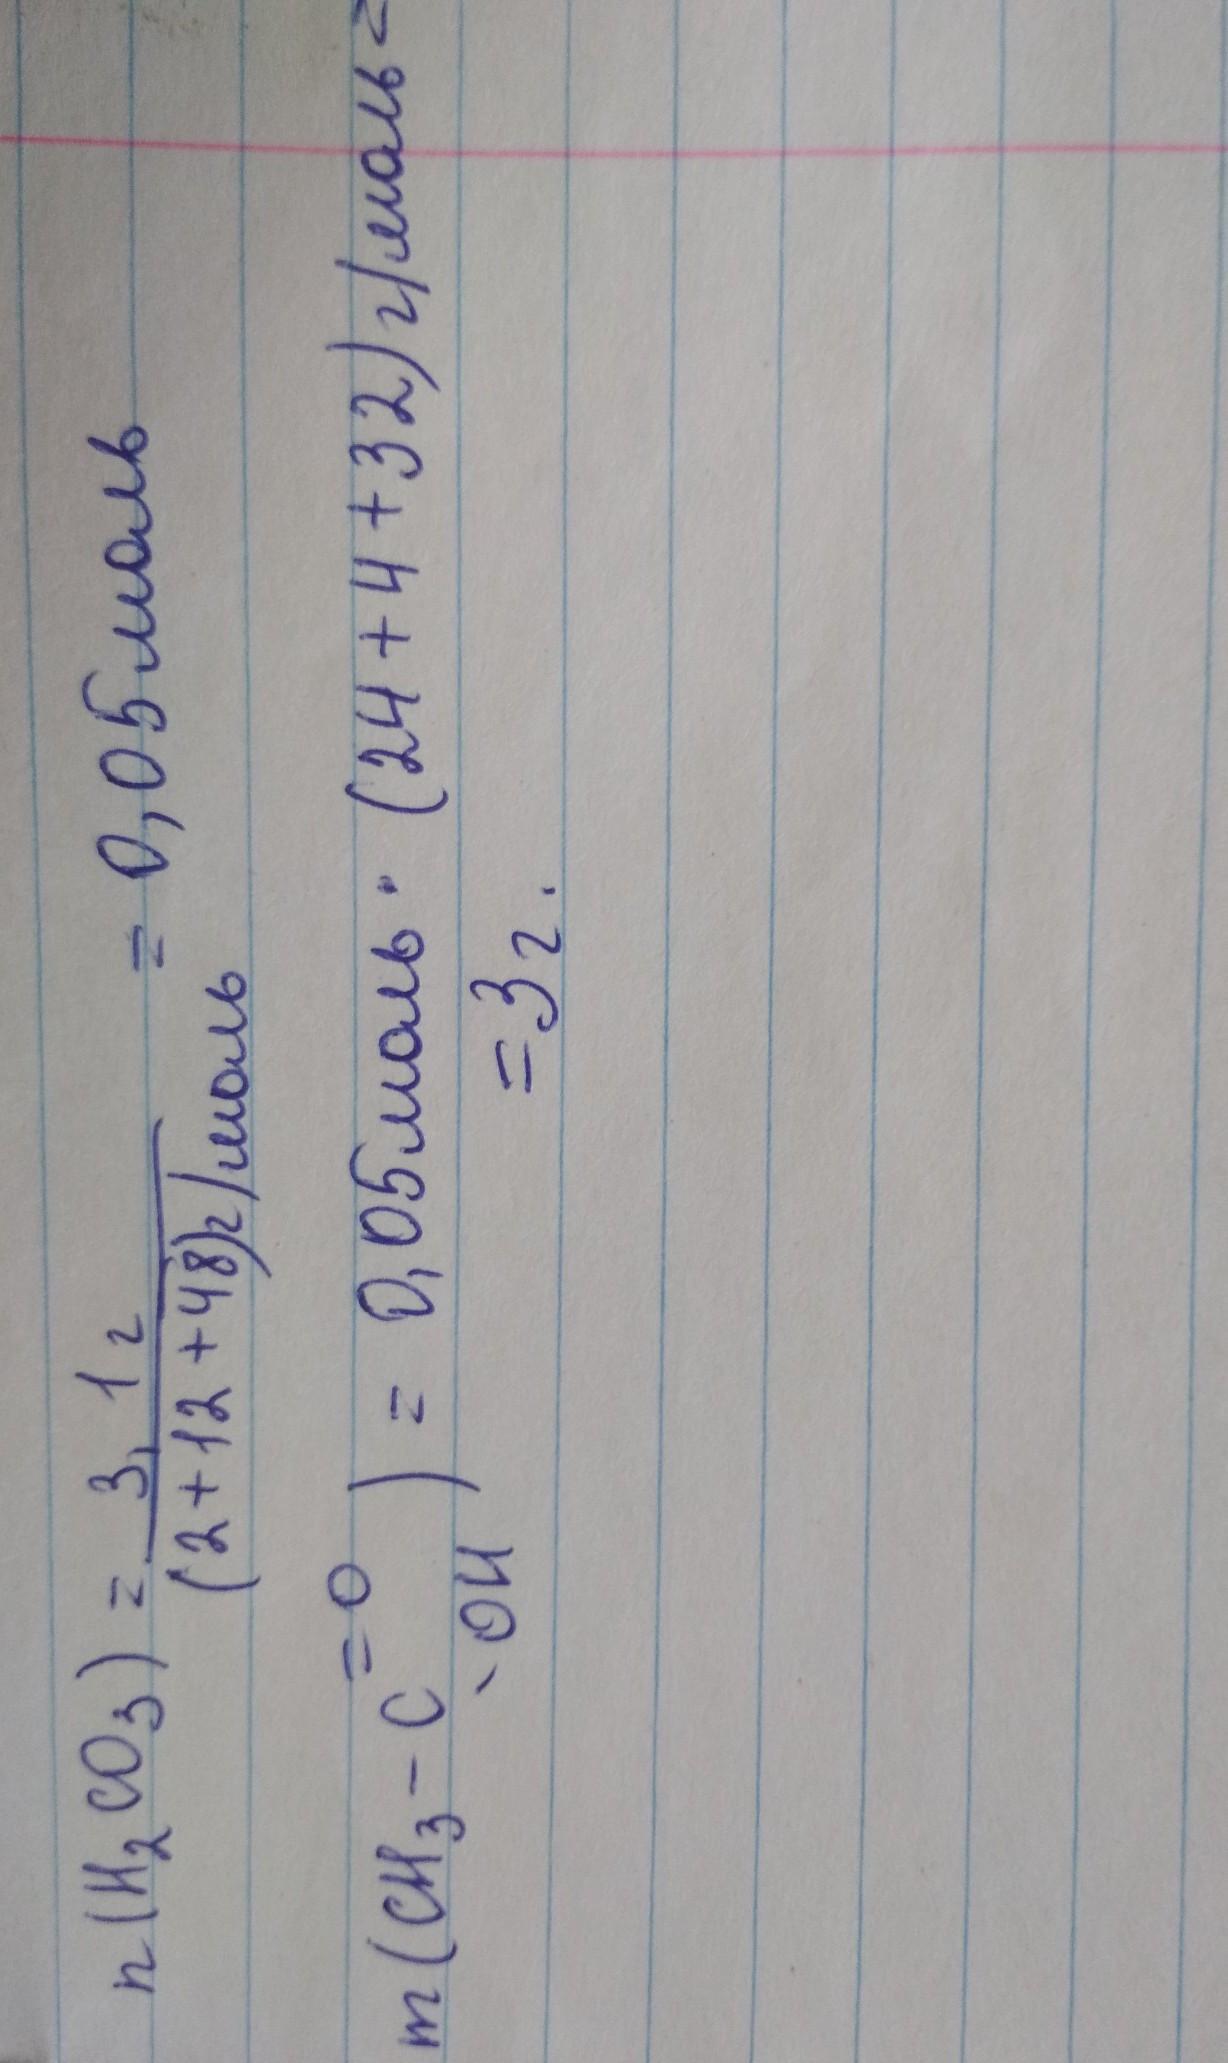 n(H₂CO₃) = 3,1г / (2+12+48)г/моль = 0,05моль
m(CH₃-C=O
-OH) = 0,05моль · (24+4+32)г/моль =
=3г.